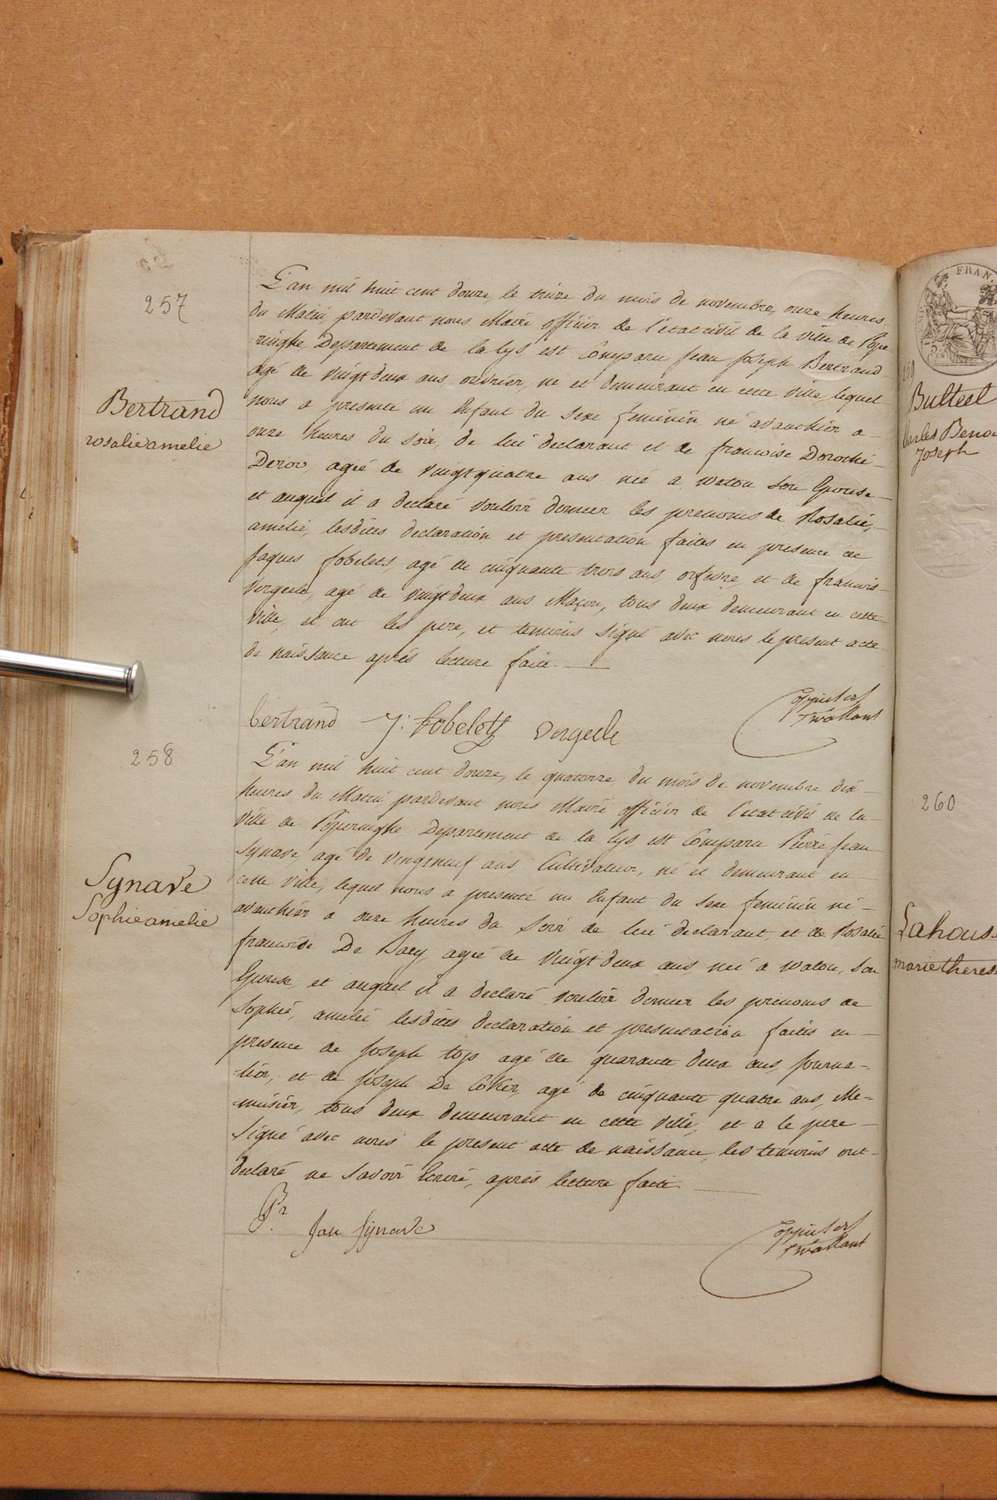 257
L'an mil huit cent douze, le treize du mois de novembre, onze heures
du Matin pardevant nous Maire officier de l'etat civil de la ville de Pope
ringhe Departement de la lys est Comparu Jean Joseph Bertrand
agé de vingt deux ans ouvrier, né et demeurant en cette ville, lequel
nous a presenté un Enfant du sexe feminin né avanthier a
onze heures du soir, de lui declarant et de francoise Dorothé
agée de vingt quatre ans née a watou son Epouse
et auquel il a declaré vouloir donner les prenoms de Rosalie,
amelie, lesdites declaration et presentation faites en presence de
Jaques fobelets agé de cinquante trois ans orfevre et de francois
vergeele, agé de vingt deux ans Maçon, tous deux demeurant en cette
ville, et ont les pere, et temoins signé avec nous le present acte
de naissance après lecture faite.
Bertrand
rosalie amelie
bertrand J: fobelets vergeele
258
L'an mil huit cent douze, le quatorze du mois de novembre dix
heures du Matin pardevant nous Maire officier de l'etat civil de la
ville de Poperinghe Departement de la lys est Comparu Pierre Jean
Synave agé de vingt neuf ans Cultivateur, né et demeurant en
cette ville, lequel nous a presenté un Enfant du sexe feminin né
avanthier a onze heures du Soir de lui declarant et de Rosalie
francoise De Baey agée de vingt deux ans née a watou, son
Epouse, et auquel il a declaré vouloir donner les prenoms de
Sophie, amelie lesdites declaration et presentation faites en
presence de Joseph tops agé de quarante deux ans, journa-
lier, et de Joseph De Coker, agé de cinquante quatre ans, Me-
nuisier, tous deux demeurant en cette ville, et a le pere
signé avec nous le present acte de naissance, les temoins ont
declaré ne savoir Ecrire, après lecture faite.
Synave
Sophie amelie
Jan Synave
Bulteel
Charles Benoi
Joseph
260
Lahous
marie theres
FRAN